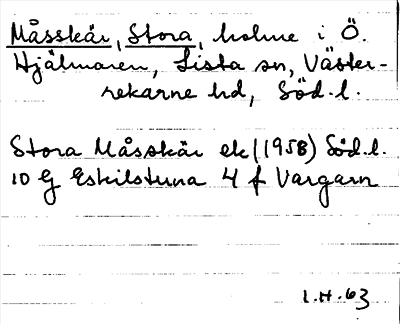 Måsskär, Stora, holme i Ö.
Hjälmaren, Lista sn, Väster-
rekarne hd, Söd. l.
Stora Måsskär ek (1958) Söd. l.
10 G Eskilstuna 4 f Vargarn
I.H. 63